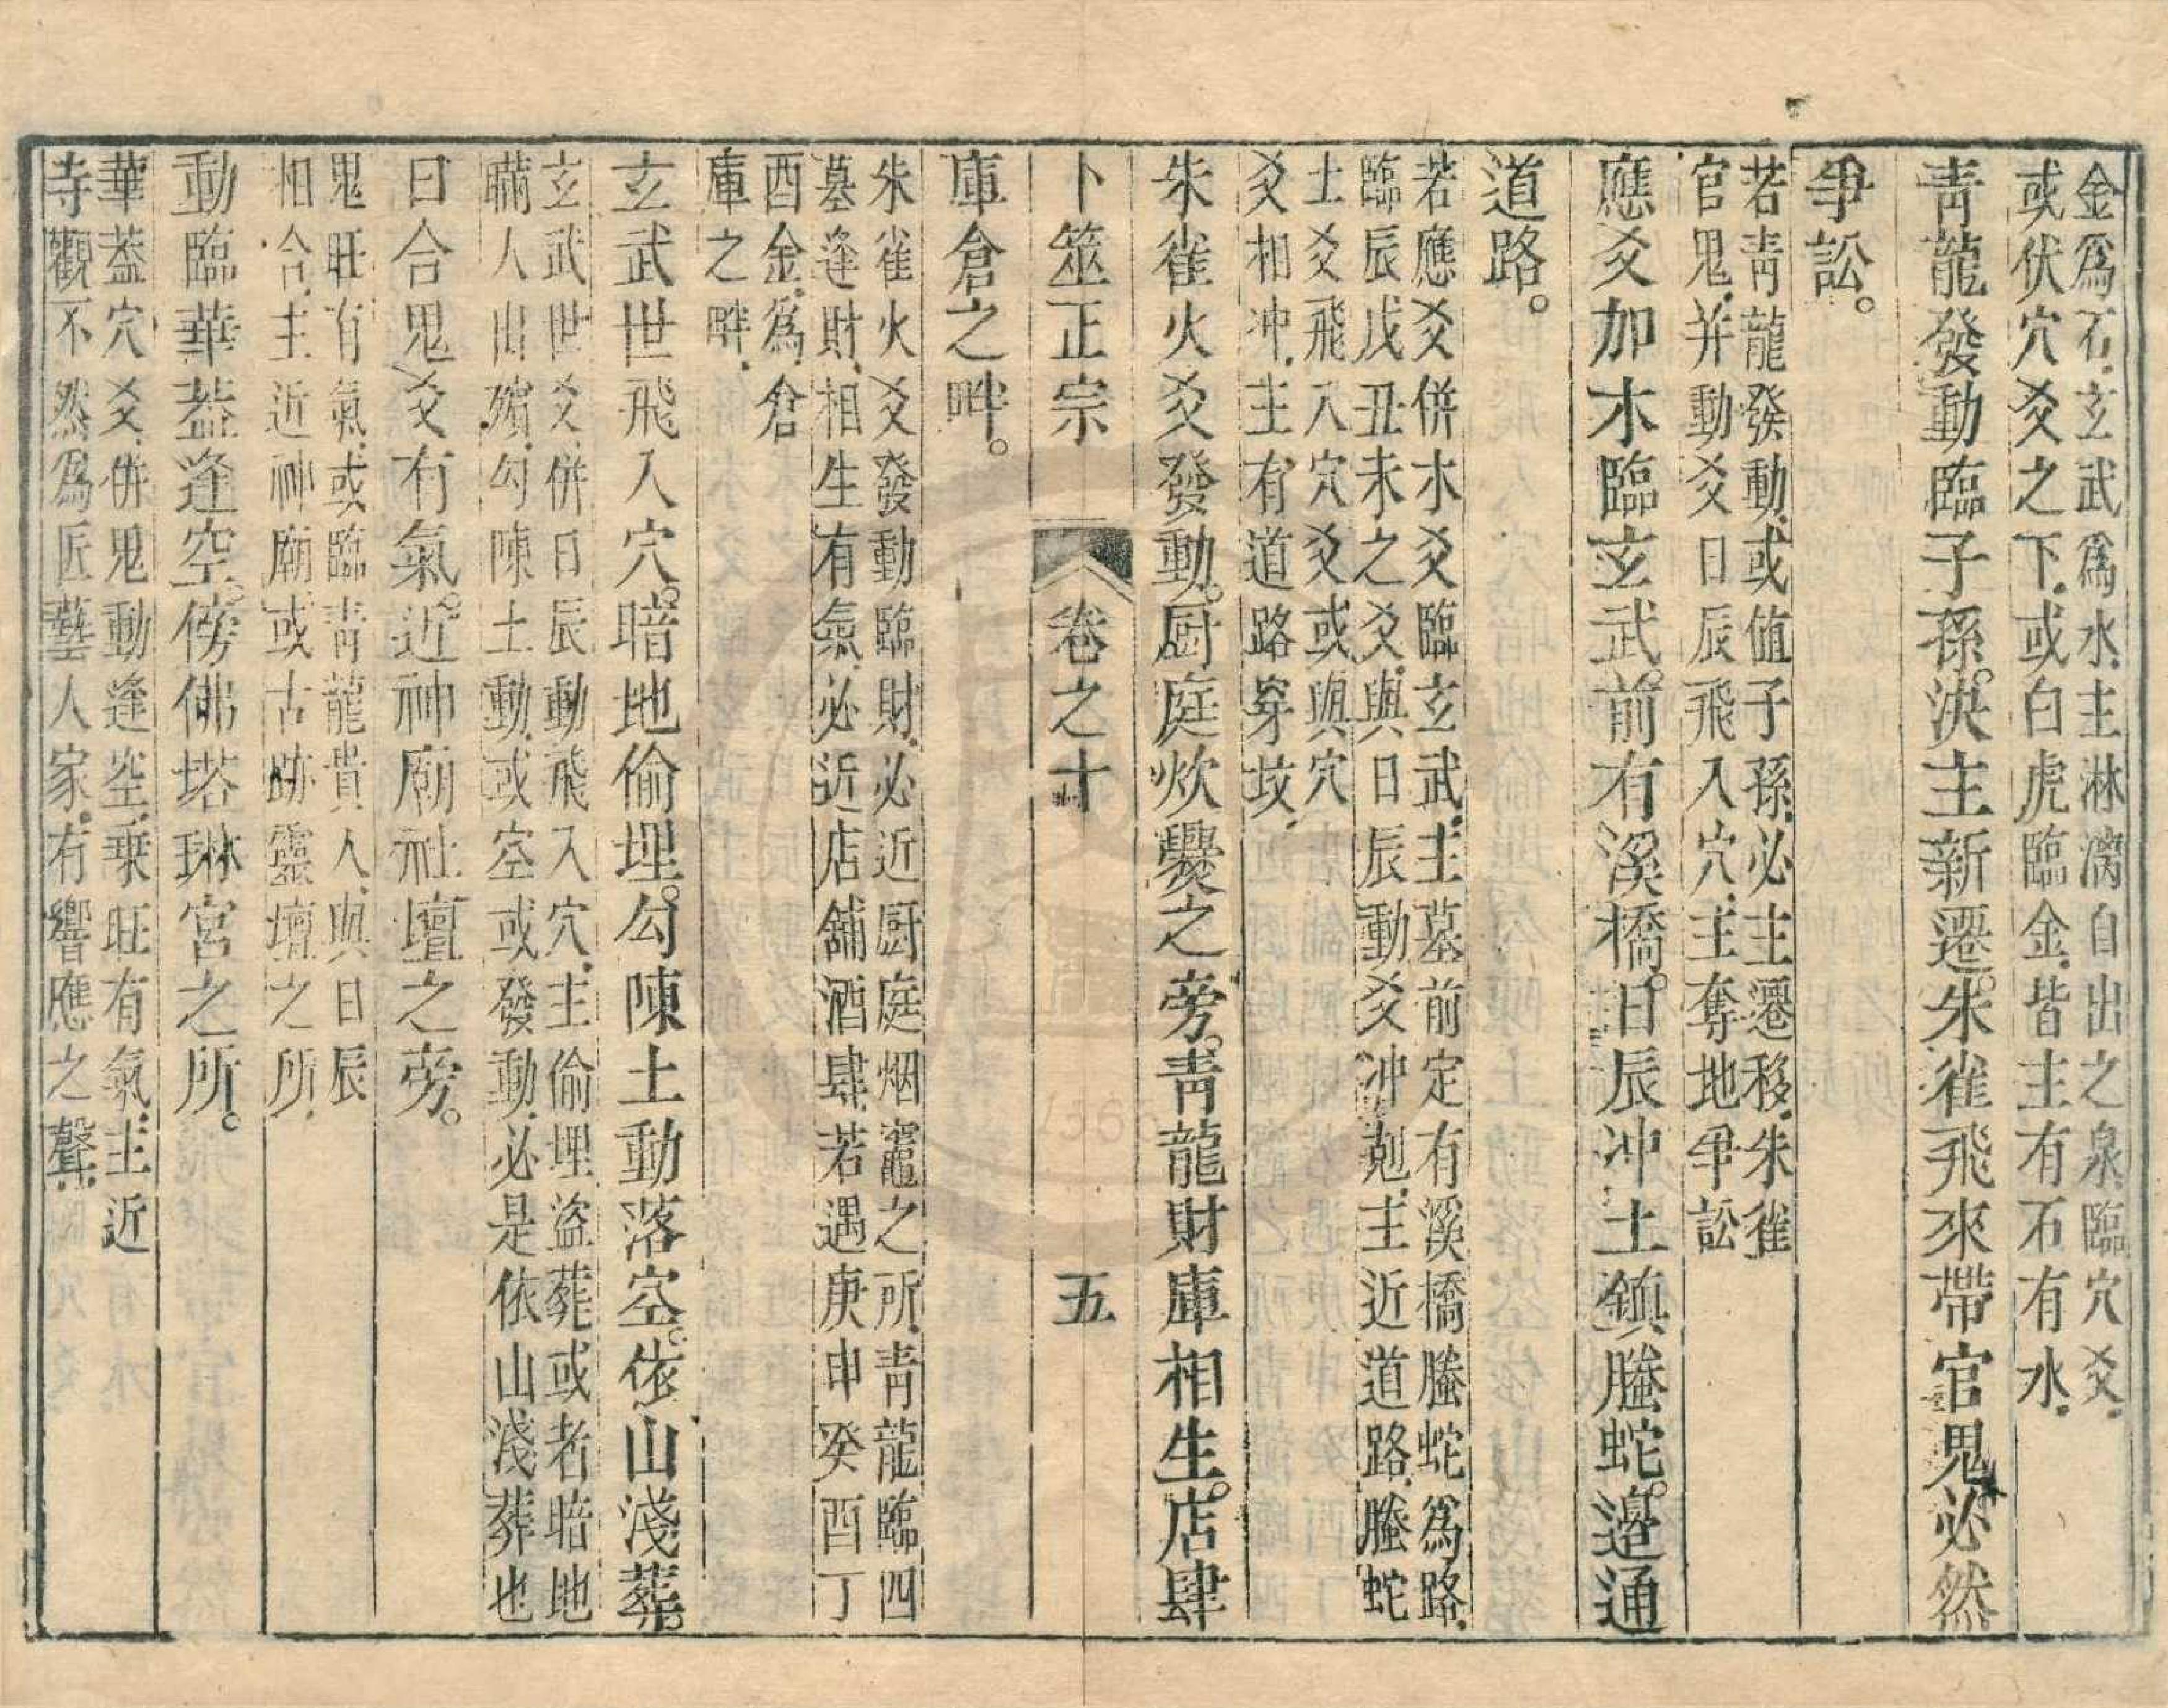 金爲石玄武爲水主淋漓自出之泉臨穴爻
或伏穴爻之下或白虎臨金皆主有石有水
青龍發動臨子孫。決主新遷。朱雀飛來帶官鬼必然
爭訟。
若青龍發動或值子孫必主遷移朱雀
官鬼并動爻日辰飛入穴主奪地爭訟
應爻加木臨玄武。前有溪橋。日辰冲土鎮螣蛇。邉通
道路。
若應爻併木爻臨玄武主墓前定有溪橋螣蛇爲路
臨辰戌丑未之爻與日辰動爻冲剋主近道路螣蛇
土爻飛入穴爻或與穴
爻相冲主有道路穿坟
朱雀火爻發動。厨庭炊爨之旁。青龍財庫相生。店肆
卜筮正宗 卷之十 五
庫倉之畔。
朱雀火爻發動臨財必近厨庭烟竈之所青龍臨四
墓逢財相生有氣必近店舖酒肆若遇庚申癸酉丁
酉金爲倉
庫之畔
玄武世飛入穴。暗地偷埋。勾陳土動落空。依山淺葬。
玄武世爻併日辰動飛入穴主偷埋盜葬或者暗地
瞞人出殯勾陳土動或空或發動必是依山淺葬也
日合鬼爻有氣。近神廟社壇之旁。
鬼旺有氣或臨青龍貴人與日辰
相合主近神廟或古跡靈壇之所
動臨華葢逢空。傍佛塔琳宮之所。
華葢穴爻併鬼動逢空乗旺有氣主近
寺觀不然爲匠藝人家有響應之聲